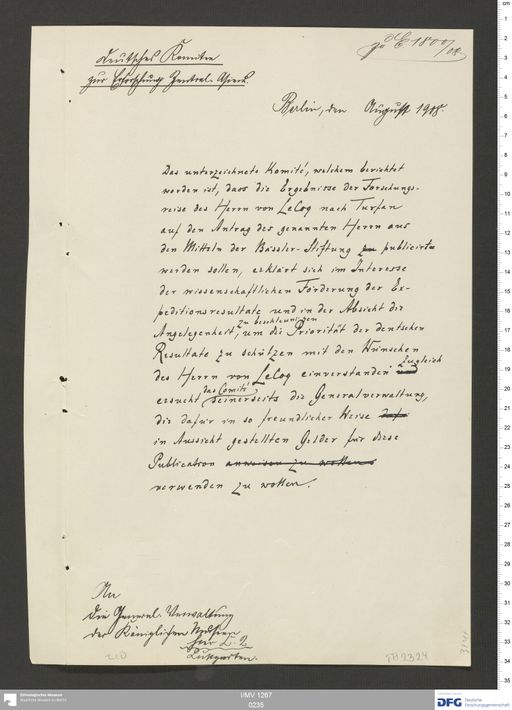 zu E 1800/08
Deutsches Komitee
zur Erforschung Zentral-Asiens
Berlin, den August 1908.
Das unterzeichnete Komité, welchem berichtet
worden ist, dass die Ergebnisse der Forschungs-
reise des Herrn von LeCoq nach Turfan
auf den Antrag des genannten Herrn aus
den Mitteln der Bässler-Stiftung zu publicirt
werden sollen, erklärt sich im Interesse
der wissenschaftlichen Förderung der Ex-
peditionsresultate und in der Absicht die
zu beschleunigen
Angelegenheit, um die Priorität der deutschen
Resultate zu schützen mit den Wünschen
des Herrn von LeCoq einverstanden. Zugleich
das Comité
ersucht seinerseits die Generalverwaltung,
die dafür in so freundlicher Weise
in Aussicht gestellten Gelder für diese
Publication anweisen zu wollen
verwenden zu wollen.
An
die General-Verwaltung
der Königlichen Museen
hier C. 2
Lustgarten.
TA 2324
Ethnologisches Museum
Staatliche Museen zu Berlin
I/MV 1267
0235
DFG Deutsche
Forschungsgemeinschaft